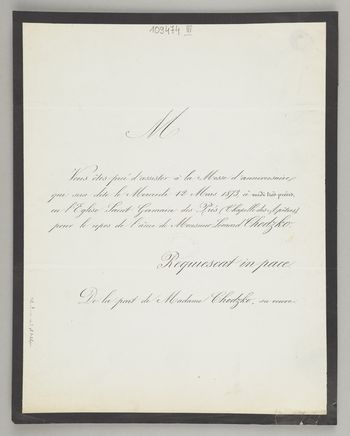 109474 III
M
Vous êtes prié d'assister à la Messe d'anniversaire,
qui sera dite le Mercredi 12 Mars 1873 à midi très précis,
en l'Eglise Saint Germain des Prés (Chapelle des Apôtres)
pour le repos de l'âme de Monsieur Léonard Chodzko.
Requiescat in pace
De la part de Madame Chodzko, sa veuve.